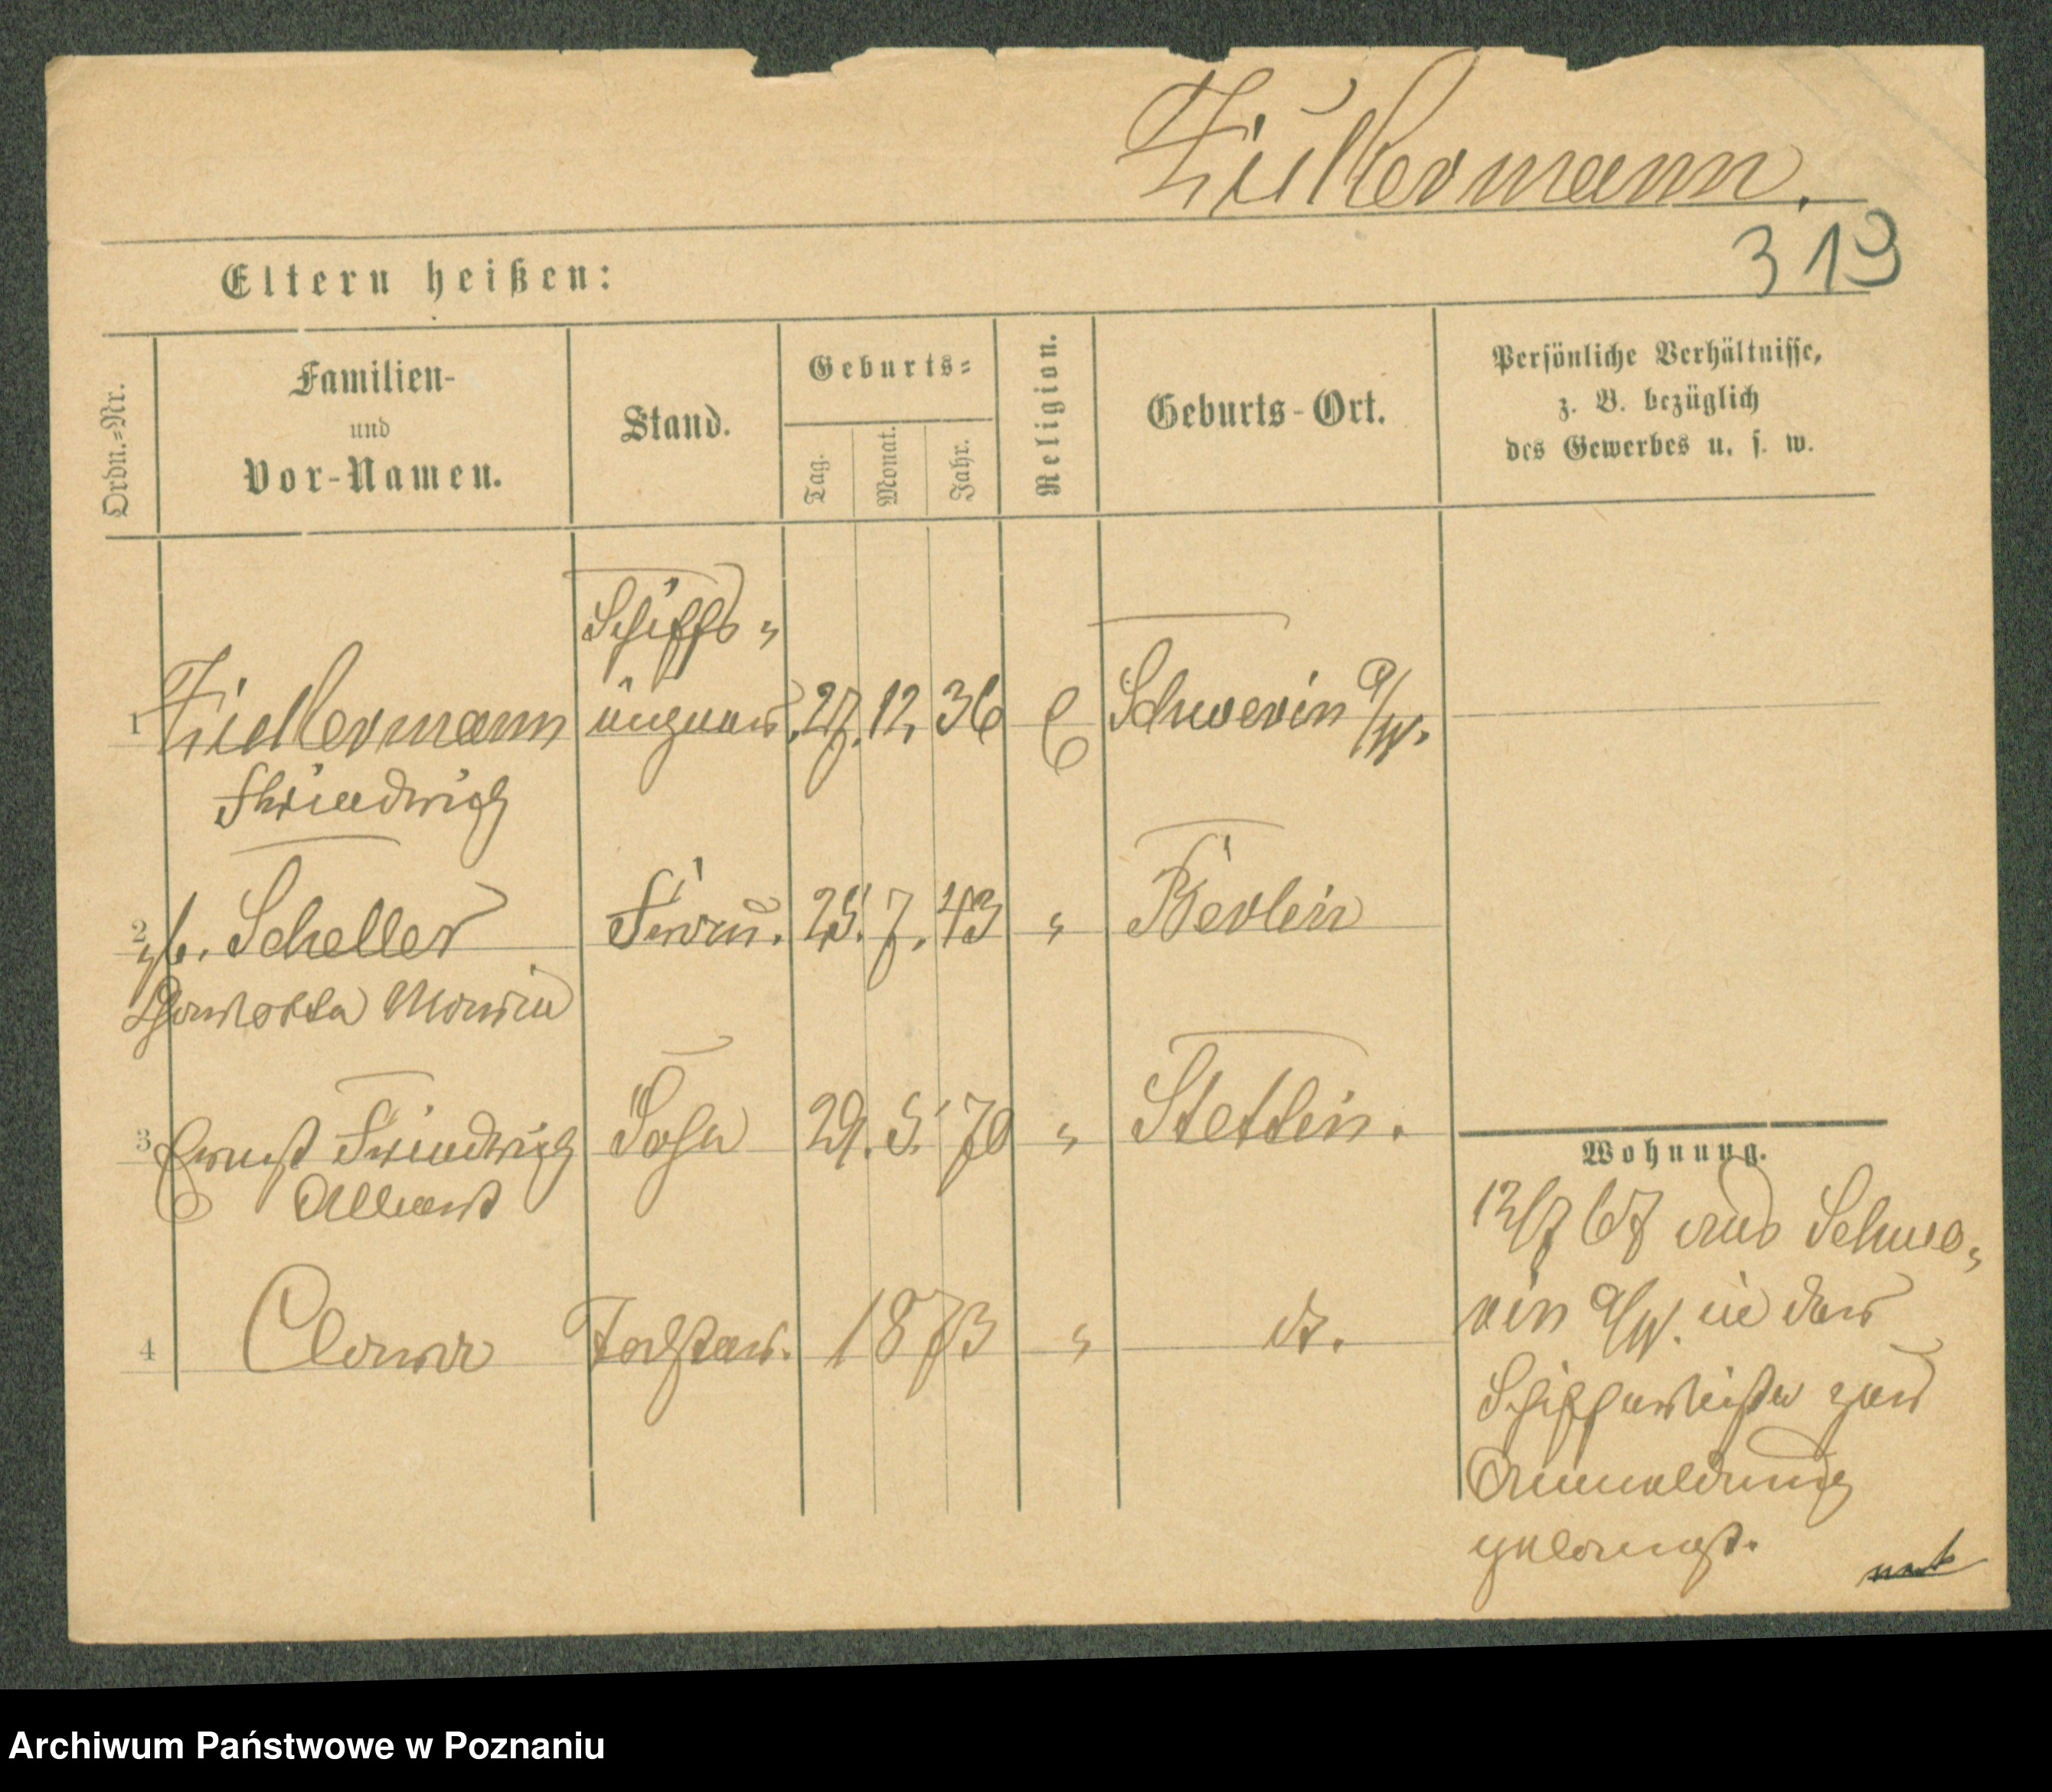 Zickermann.
319
Eltern heißen:
Ordn.=Nr.
Familien-
und
Vor-Namen.
Stand.
Geburts=
Tag.
Monat.
Jahr.
Religion.
Geburts-Ort.
Persönliche Verhältnisse,
z. B. bezüglich
des Gewerbes u. s. w.
Schiffs-
1 Zickermann eigner. 27. 12. 36 E Schwerin a/W.
Friedrich
2 gb. Scheller Frau. 25. 7. 43 " Berlin
Charlotte Marie
3 Ernst Friedrich Sohn 29. 5. 70 " Stettin.
Albert
4 Clara Tochter. 1873 " do.
Wohnung.
12/7 67 aus Schwe-
rin a/W. in der
Schifferliste zur
Anmeldung
gelangt.